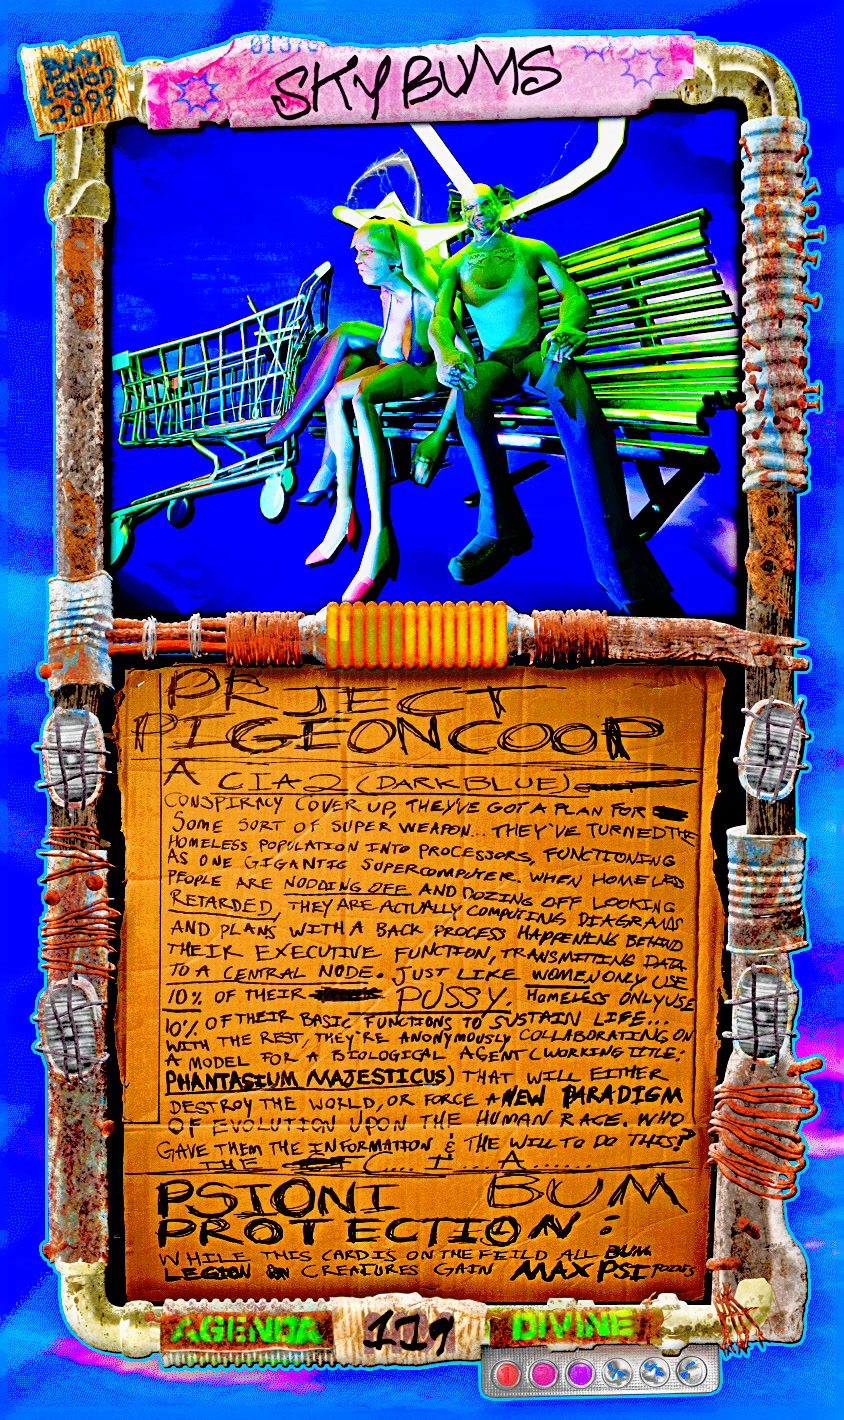 01376
Bum
Legion
2099
SKYBUMS
PRJECT
PIGEONCOOP
A CIA2 (DARKBLUE)
CONSPIRACY COVER UP, THEY'VE GOT A PLAN FOR
SOME SORT OF SUPER WEAPON... THEY'VE TURNED THE
HOMELESS POPULATION INTO PROCESSORS, FUNCTIONING
AS ONE GIGANTIC SUPERCOMPUTER. WHEN HOMELESS
PEOPLE ARE NODDING OFF AND DOZING OFF LOOKING
RETARDED, THEY ARE ACTUALLY COMPUTING DIAGRAMS
AND PLANS WITH A BACK PROCESS HAPPENING BEHIND
THEIR EXECUTIVE FUNCTION, TRANSMITTING DATA
TO A CENTRAL NODE. JUST LIKE WOMEN ONLY USE
10% OF THEIR PUSSY. HOMELESS ONLY USE
10% OF THEIR BASIC FUNCTIONS TO SUSTAIN LIFE...
WITH THE REST, THEY'RE ANONYMOUSLY COLLABORATING ON
A MODEL FOR A BIOLOGICAL AGENT (WORKING TITLE:
PHANTASIUM MAJESTICUS) THAT WILL EITHER
DESTROY THE WORLD, OR FORCE A NEW PARADIGM
OF EVOLUTION UPON THE HUMAN RACE. WHO
GAVE THEM THE INFORMATION & THE WILL TO DO THIS?
THE C.... I.... A.......
PSIONI BUM
PROTECTION:
WHILE THIS CARD IS ON THE FEILD ALL BUM
LEGION CREATURES GAIN MAX PSI POINTS
AGENDA 119 DIVINE